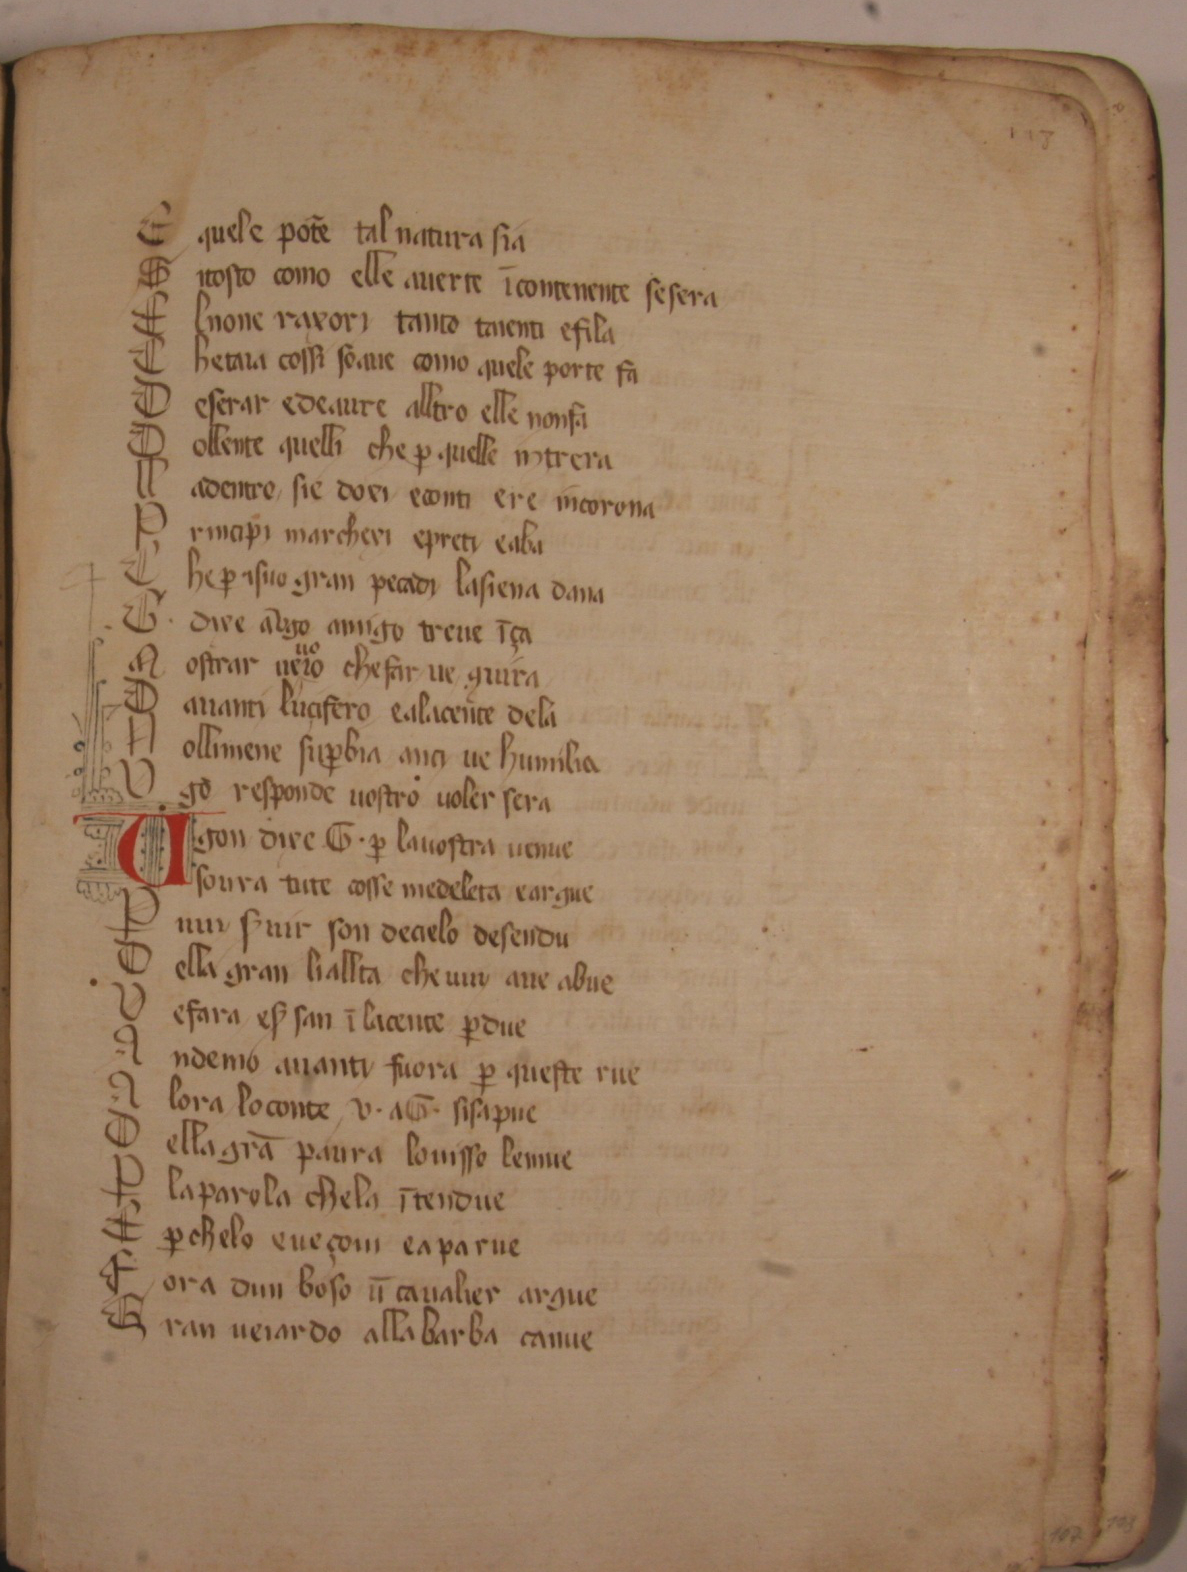 117
E quele pot̄e tal natura sia
S itosto como elle auerte ī contenente se sera
E l none raxori tanto taienti e fila
C he taia cossi soaue como quele porte fa
D e serar e de aurir alltro elle non fa
D ollente quelli che ꝑ quelle intrera
ll adentro sie doxi e conti e re incorona
P rincipi marchexi e preti e aba
C he ꝑ i suo gran pecadi la siena dana
G · dixe a Vgo amigo treue īça
M ostrar ue uoio che far ue guira
D auanti luçifero e a la çente de la
N ollimene suꝑbia anci ue humilia
V go responde uostro uoler sera
V gon dixe G · ꝑ la uostra uenue
A soura tute cosse me deleta e argue
P nui s̄uir son de cielo desendu
D ella gran liallta che uui aue abue
V e fara es̄ san ī la cente ꝑdue
A ndemo auanti fuora ꝑ queste rue
A lora lo conte V · a G · si sapue
D ella grā paura lo uisso lemue
P la parola che la ītendue
E ꝑ che lo eue çoui e a parue
F ora dun boso ū caualier argue
G ran ueiardo alla barba canue
107
108